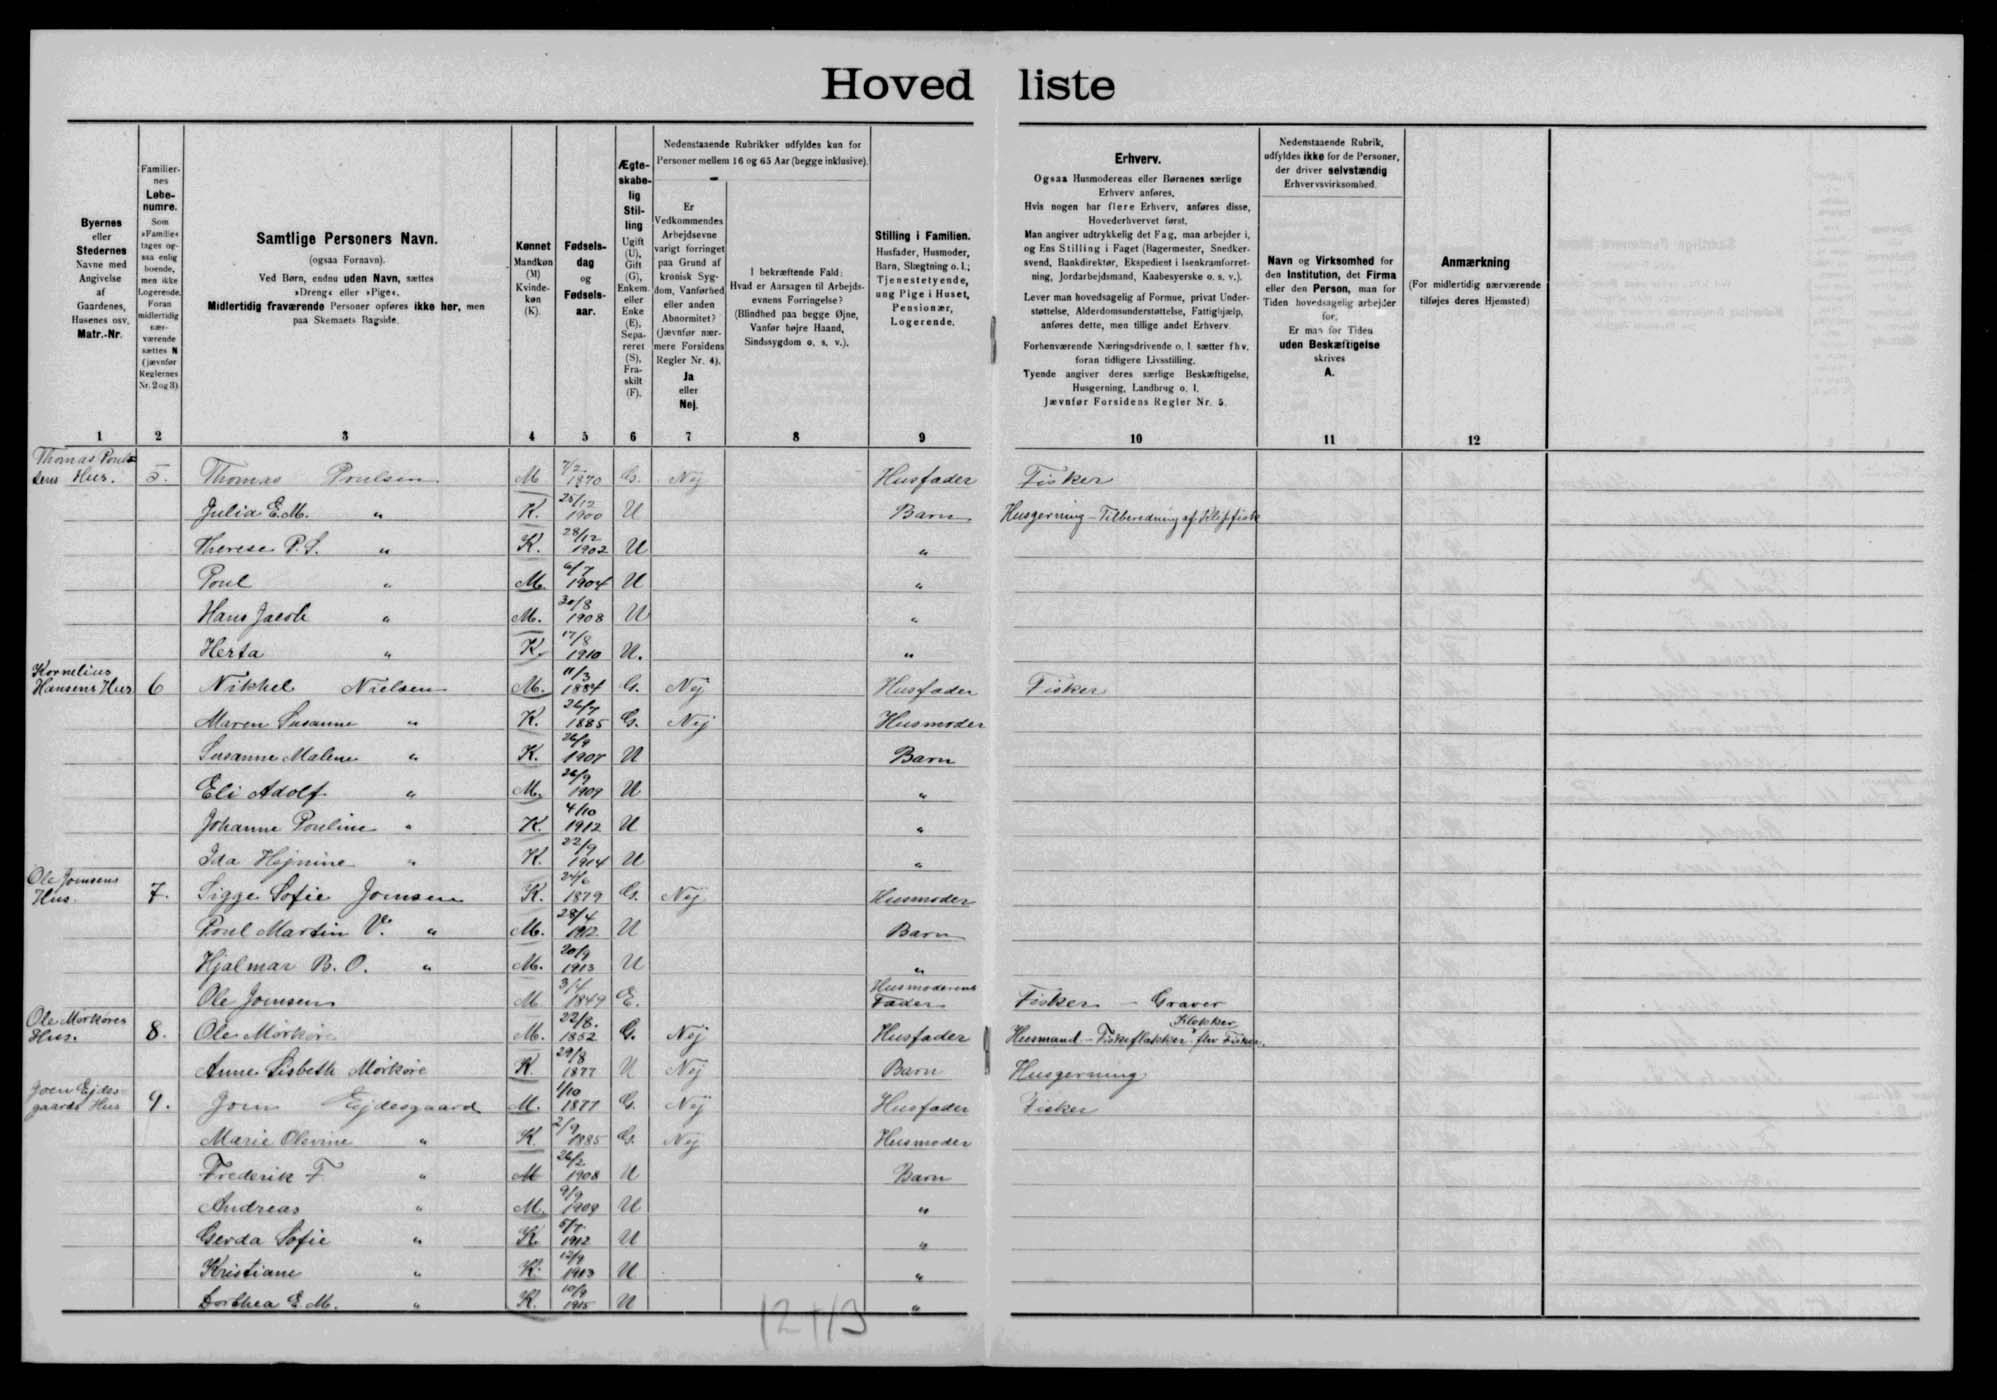 Hovedliste
Byernes
eller
Stedernes
Navne med
Angivelse
af
Gaardenes,
Husenes osv.
Matr.-Nr.
Familier-
nes
Løbe-
numre.
Som
»Familie«
tages og-
saa enlig
boende,
men ikke
Logerende.
Foran
midlertidig
nær-
værende
sættes N
(jævnfør
Reglernes
Nr. 2 og 3).
Samtlige Personers Navn.
(ogsaa Fornavn).
Ved Børn, endnu uden Navn, sættes
»Dreng« eller »Pige«.
Midlertidig fraværende Personer opføres ikke her, men
paa Skemaets Bagside.
Kønnet
Mandkøn
(M)
Kvinde-
køn
(K).
Fødsels-
dag
og
Fødsels-
aar.
Ægte-
skabe-
lig
Stil-
ling
Ugift
(U),
Gift
(G),
Enkem.
eller
Enke
(E),
Sepa-
reret
(S),
Fra-
skilt
(F).
Nedenstaaende Rubrikker udfyldes kun for
Personer mellem 16 og 65 Aar (begge inklusive).
Er
Vedkommendes
Arbejdsevne
varigt forringet
paa Grund af
kronisk Syg-
dom, Vanførhed
eller anden
Abnormitet?
(Jævnfør nær-
mere Forsidens
Regler Nr. 4).
Ja
eller
Nej.
I bekræftende Fald:
Hvad er Aarsagen til Arbejds-
evnens Forringelse?
(Blindhed paa begge Øjne,
Vanfør højre Haand,
Sindssygdom o. s. v.).
Stilling i Familien.
Husfader, Husmoder,
Barn, Slægtning o. l.;
Tjenestetyende,
ung Pige i Huset,
Pensionær,
Logerende.
Erhverv.
Ogsaa Husmoderens eller Børnenes særlige
Erhverv anføres.
Hvis nogen har flere Erhverv, anføres disse,
Hovederhvervet først.
Man angiver udtrykkelig det Fag, man arbejder i,
og Ens Stilling i Faget (Bagermester, Snedker-
svend, Bankdirektør, Ekspedient i Isenkramforret-
ning, Jordarbejdsmand, Kaabesyerske o. s. v.).
Lever man hovedsagelig af Formue, privat Under-
støttelse, Alderdomsunderstøttelse, Fattighjælp,
anføres dette, men tillige andet Erhverv.
Forhenværende Næringsdrivende o. l. sætter fhv.
foran tidligere Livsstilling.
Tyende angiver deres særlige Beskæftigelse,
Husgerning, Landbrug o. l.
Jævnfør Forsidens Regler Nr. 5.
Nedenstaaende Rubrik,
udfyldes ikke for de Personer,
der driver selvstændig
Erhvervsvirksomhed.
Navn og Virksomhed for
den Institution, det Firma
eller den Person, man for
Tiden hovedsagelig arbejder
for.
Er man for Tiden
uden Beskæftigelse
skrives
A.
Anmærkning
(For midlertidig nærværende
tilføjes deres Hjemsted)
1 2 3 4 5 6 7 8 9 10 11 12
Thomas Poul=
sens Hus. 5. Thomas Poulsen M 7/2 1870 G. Nej Husfader Fisker
Julia E.M. " K. 25/12 1900 U Barn Husgerning - Tilberedning af Klipfisk
Therese P.S. " K. 28/12 1902 U "
Poul " M. 6/7 1904 U "
Hans Jacob " M. 30/8 1908 U "
Herta " K. 17/8 1910 U. "
Kornelius
Hansens Hus 6 Nikkel Nielsen M. 11/3 1884 G. Nej Husfader Fisker
Maren Susanne " K. 26/7 1885 G. Nej Husmoder
Susanne Malene " K. 26/9 1907 U Barn
Eli Adolf " M. 26/9 1909 U "
Johanne Pouline " K. 4/10 1912 U "
Ida Højnine " K. 22/9 1914 U "
Ole Joensens
Hus. 7. Sigge Sofie Joensen K. 24/6 1879 G. Nej Husmoder
Poul Martin V. " M. 28/4 1912 U Barn
Hjalmar B. O. " M. 20/9 1913 U "
Ole Joensen M 3/4 1849 E. Husmoderens Fader Fisker - Graver
Ole Mørkøres
Hus. 8. Ole Mørkøre M. 22/8. 1852 G. Nej Husfader Husmand - Fiskeflækker fhv Fisker. Klokker
Anne Lisbeth Mørkøre K. 29/8 1877 U Nej Barn Husgerning
Joen Ejdes-
gaards Hus 9. Joen Ejdesgaard M. 1/10 1877 G. Nej Husfader Fisker
Marie Olevine " K. 2/9 1885 G. Nej Husmoder
Frederik F. " M 26/2 1908 U Barn
Andreas " M. 9/9 1909 U "
Gerda Sofie " K. 5/7. 1912 U "
Kristiane " K. 12/9 1913 U "
Dorthea E.M. " K. 10/9 1915 U "
12+13